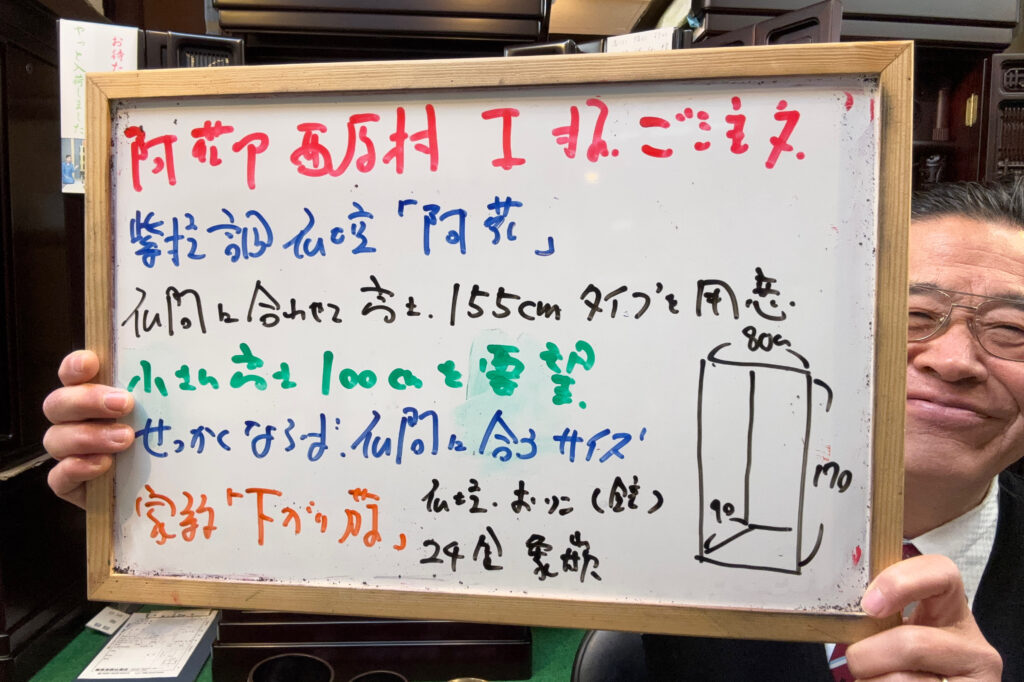 お待た
やっと入荷しました
阿蘇郡 西原村 I様 ご注文.
紫檀調仏壇「阿蘇」
仏間に合わせて高さ.155cmタイプを用意.
小さい高さ100cmを要望.
せっかくならば.仏間に合うサイズ
家紋「下がり藤」
仏壇.おりん
24金 象嵌
80cm
170
90